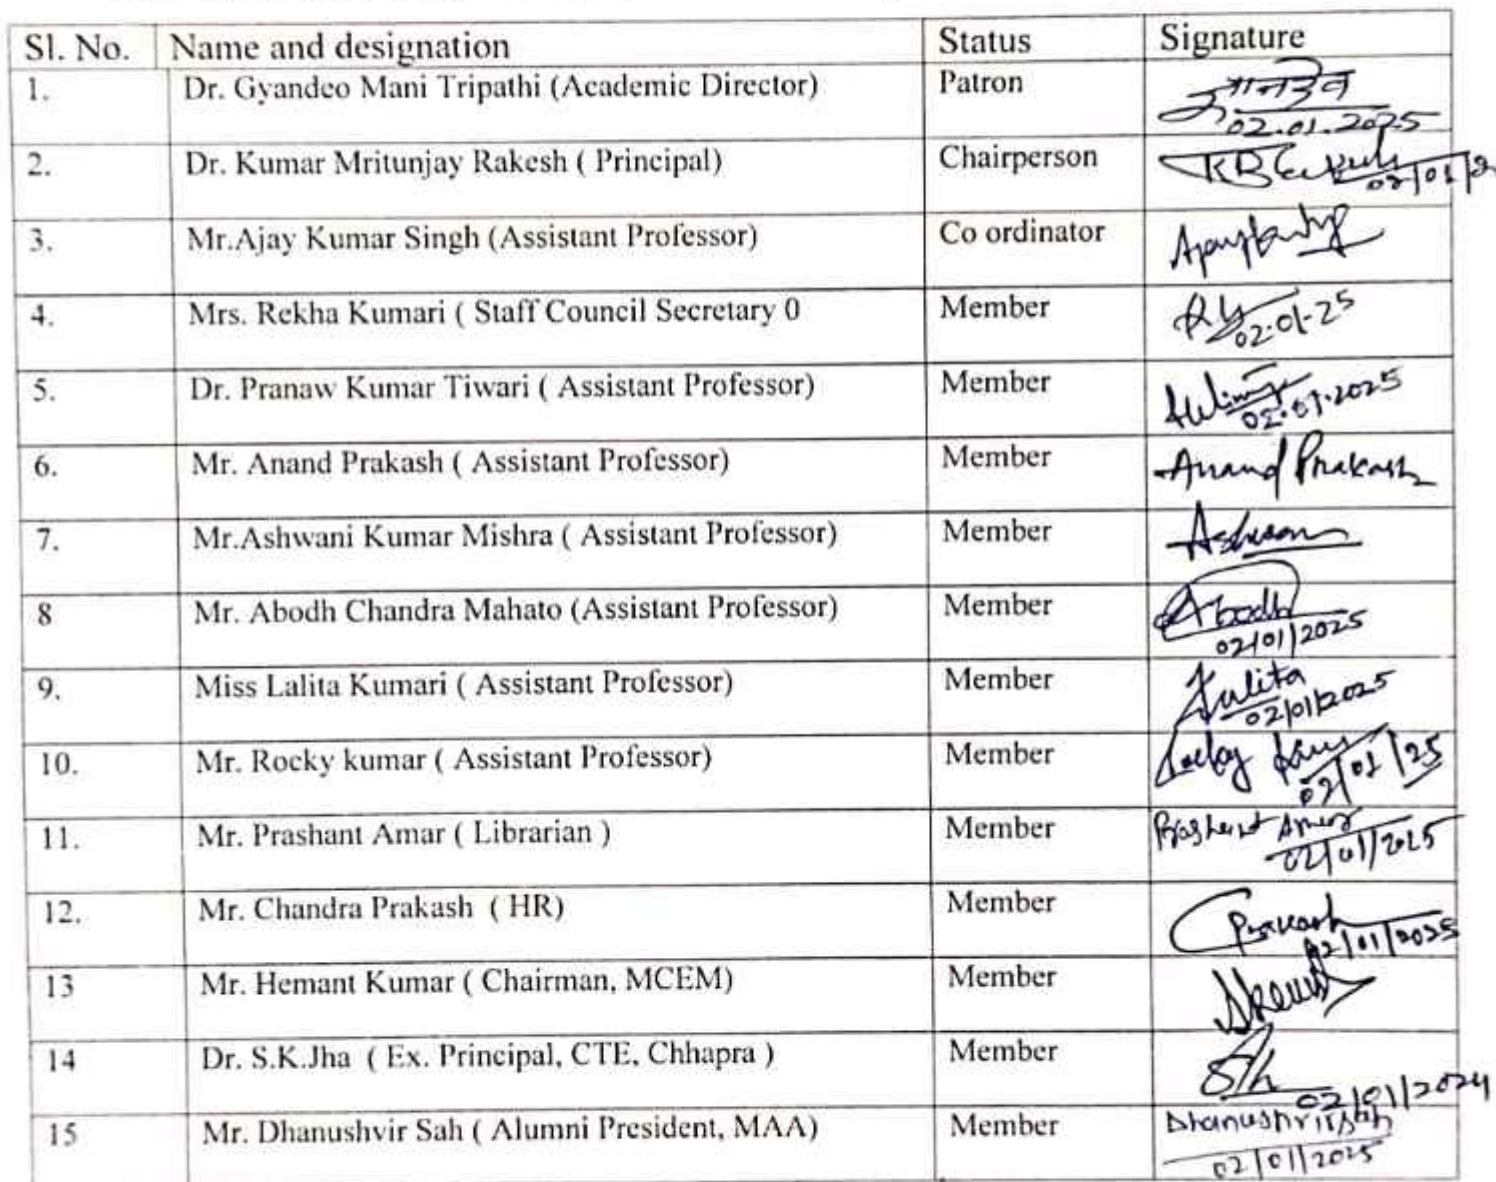 Sl. No. Name and designation Status Signature
1. Dr. Gyandeo Mani Tripathi (Academic Director) Patron ज्ञानदेव
02.01.2025
2. Dr. Kumar Mritunjay Rakesh ( Principal) Chairperson
02/01/2
3. Mr.Ajay Kumar Singh (Assistant Professor) Co ordinator
4. Mrs. Rekha Kumari ( Staff Council Secretary 0 Member
02-01-25
5. Dr. Pranaw Kumar Tiwari ( Assistant Professor) Member
02.01.2025
6. Mr. Anand Prakash ( Assistant Professor) Member Anand Prakash
7. Mr.Ashwani Kumar Mishra ( Assistant Professor) Member
8 Mr. Abodh Chandra Mahato (Assistant Professor) Member Abodh
02/01/2025
9. Miss Lalita Kumari ( Assistant Professor) Member Lalita
02/01/2025
10. Mr. Rocky kumar ( Assistant Professor) Member
02/01/25
11. Mr. Prashant Amar ( Librarian ) Member Prashant Amar
02/01/2025
12. Mr. Chandra Prakash ( HR) Member CPrakash
02/01/2025
13 Mr. Hemant Kumar ( Chairman, MCEM) Member
14 Dr. S.K.Jha ( Ex. Principal, CTE, Chhapra ) Member
02/01/2024
15 Mr. Dhanushvir Sah ( Alumni President, MAA) Member
02/01/2025